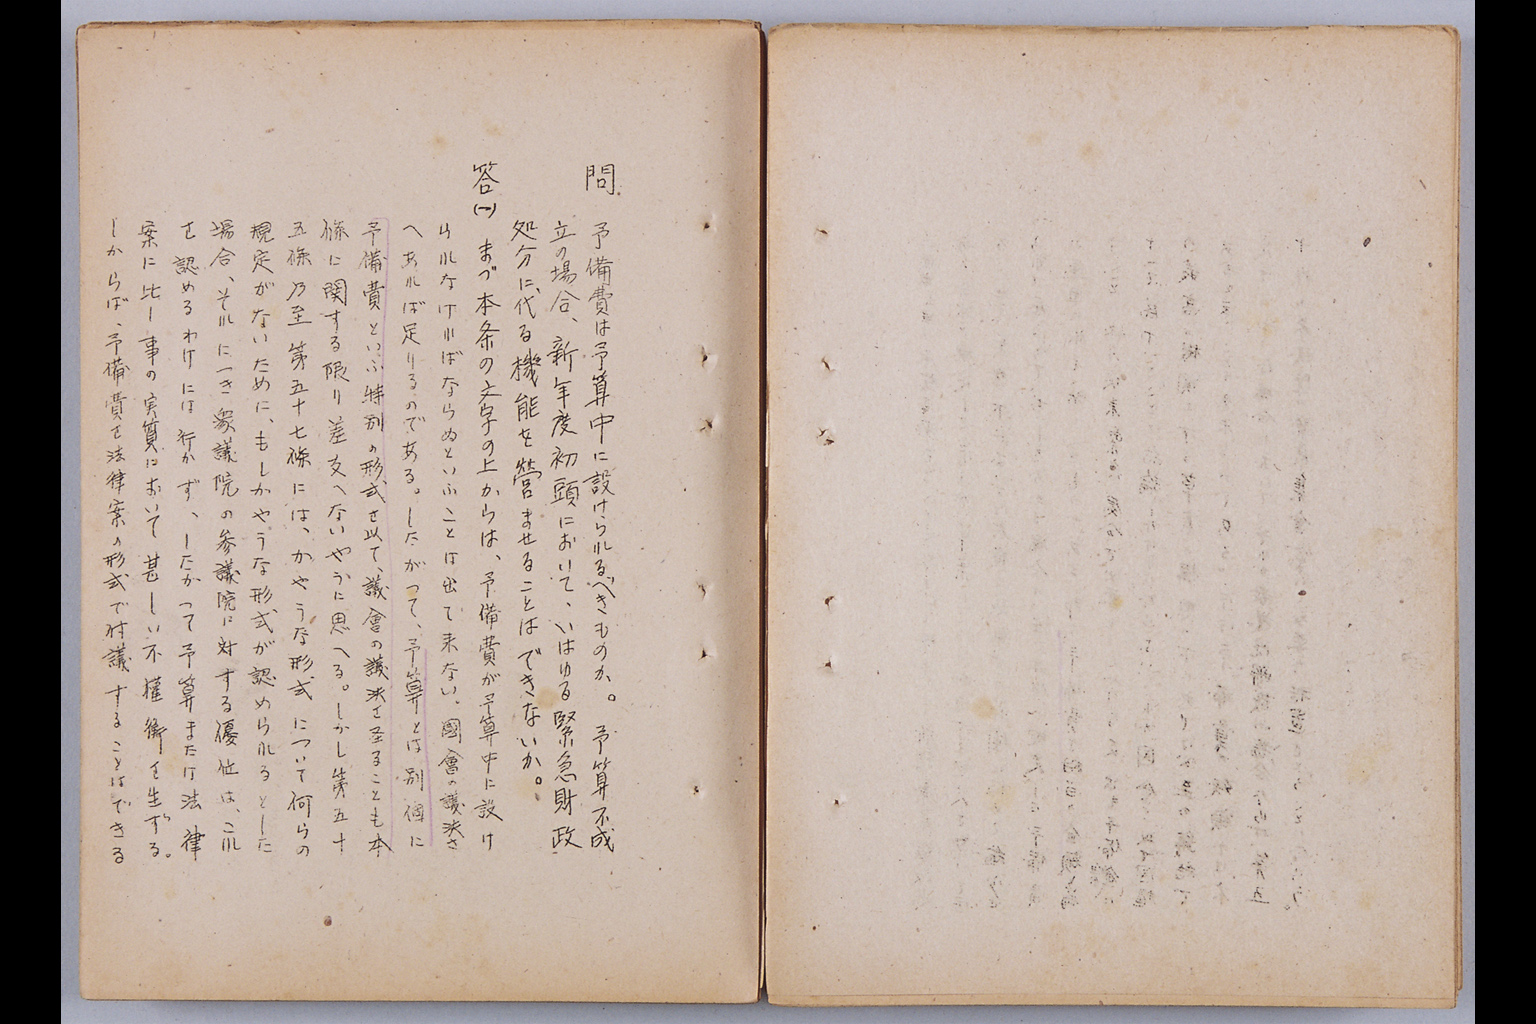 問　予備費は予算中に設けられるべきものか。予算不成
立の場合、新年度初頭において、いはゆる緊急財政
処分に代る機能を営ませることはできないか。
答(一)　まづ本条の文字の上からは、予備費が予算中に設け
られなければならぬといふことは出て来ない。國會の議決さ
へあれば足りるのである。したがつて、予算とは別個に
予備費といふ特別の形式を以て、議會の議決を至ることも本
條に関する限り差支へないやうに思へる。しかし第五十
五條乃至第五十七條には、かやうな形式について何らの
規定がないために、もしかやうな形式が認められるとした
場合、それにつき衆議院の参議院に対する優位は、これ
を認めるわけには行かず、したかつて予算または法律
案に比し事の実質において甚しい不権衡を生ずる。
しからば、予備費を法律案の形式で付議することはできる